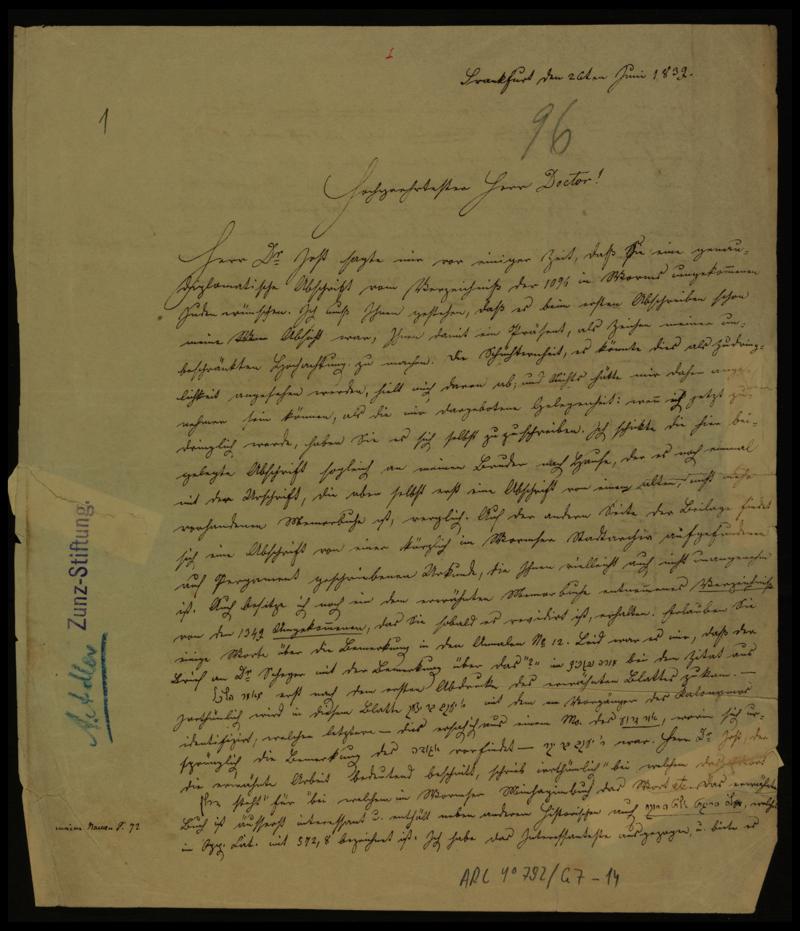 1
1
Frankfurt den 26ten Juni 1839.
96
Hochgeehrtester Herr Doctor!
Herr Dr. Jost sagte mir vor einiger Zeit, daß Sie eine genau-
diplomatische Abschrift vom Verzeichniß der 1096 in Worms umgekommenen
Juden wünschen. Ich muß Ihnen gestehen, daß es beim ersten Abschreiben schon
meine Absicht war, Ihnen damit ein Präsent, als Zeichen meiner un-
beschränkten Hochachtung zu machen. Die Schüchternheit, es könnte dies als Zudring-
lichkeit angesehen werden, hielt mich davon ab, und Nichts hätte mir daher ange-
nehmer sein können, als die mir dargebotene Gelegenheit: wenn ich jetzt zu-
dringlich werde, haben Sie es sich selbst zuzuschreiben. Ich schickte die hier bei-
gelegte Abschrift sogleich an meinen Bruder nach Hause, der es noch einmal
mit der Urschrift, die aber selbst erst eine Abschrift von einem alten, nicht mehr
vorhandenen Memorbuche ist, verglich. Auf der andern Seite der Beilage findet
sich eine Abschrift von einer kürzlich im Wormser Stadtarchiv aufgefundenen
auf Pergament geschriebenen Urkunde, die Ihnen vielleicht auch nicht unangenehm
ist. Auch besitze ich noch ein dem erwähnten Memorbuche entnommenes Verzeichniß
von den 1349 Umgekommenen, das Sie sobald es revidirt ist, erhalten. Erlauben Sie
einige Worte über die Bemerkung in den Annalen No 12. Leid war es mir, daß der
Brief an Dr. mit der Bemerkung über das in bei dem Zitat aus
erst nach dem ersten Abdrucke des erwähnten Blattes zukam. —
Irrthümlich wird in diesem Blatte mit dem Vorgänger des Kalonymos
identifizirt, welchen letztern — dies ersah ich aus einem Ms. des worin sich ur-
sprünglich die Bemerkung des vorfindet — war. Herr Dr. Jost, der
die erwähnte Arbeit bedeutend beschnitt, schrieb irrthümlich "bei welchem
steht" für "bei welchem im Wormser das Wort etc. Das erwähnte
Buch ist äusserst interessant u. enthält neben anderem Historischen auch
in Opp. Cat. mit 572,8 bezeichnet ist. Ich habe das Interessanteste ausgezogen, u. biete es
Zunz-Stiftung.
A. Adler
meine Namen S. 72
ARC 4° 792/G7-14